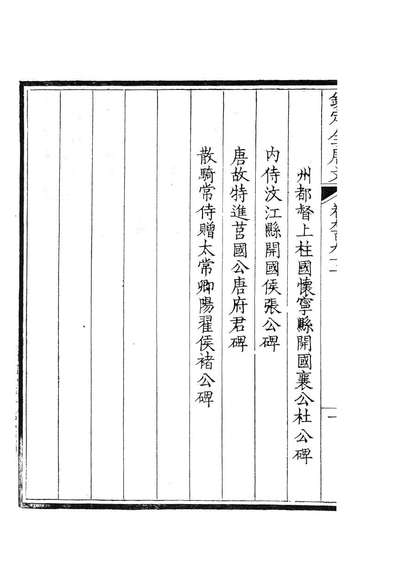 欽定全唐文
一
州都督上柱國懷寧縣開國襄公杜公碑
內侍汶江縣開國侯張公碑
唐故特進莒國公唐府君碑
散騎常侍贈太常卿陽翟侯褚公碑